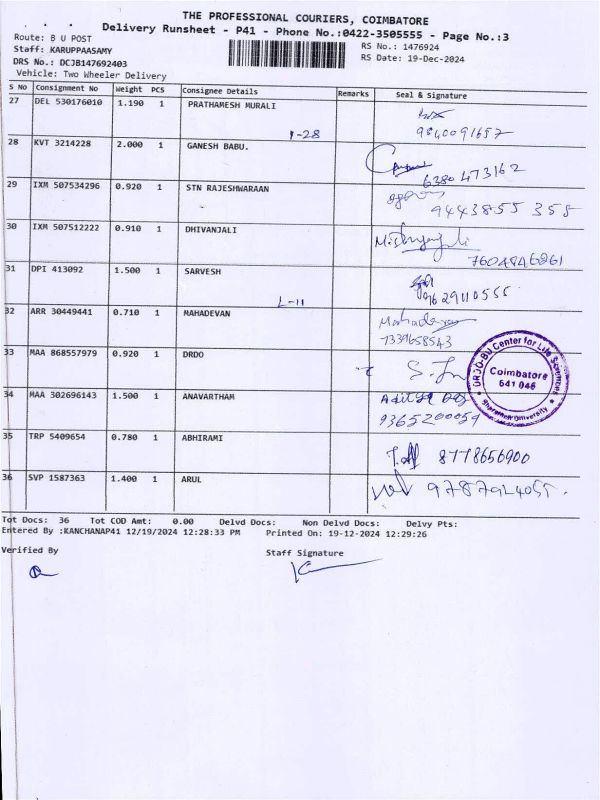 THE PROFESSIONAL COURIERS, COIMBATORE
Delivery Runsheet - P41 - Phone No.:0422-3505555 - Page No.:3
Route: B U POST
RS No.: 1476924
Staff: KARUPPAASAMY
RS Date: 19-Dec-2024
DRS No.: DCJB147692403
Vehicle: Two Wheeler Delivery
S No Consignment No Weight PCS Consignee Details Remarks Seal & Signature
27 DEL 530176010 1.190 1 PRATHAMESH MURALI
1-28 9840091657
28 KVT 3214228 2.000 1 GANESH BABU.
6380473162
29 IXM 507534296 0.920 1 STN RAJESHWARAAN
9443855 358
30 IXM 507512222 0.910 1 DHIVANJALI
7604846861
31 DPI 413092 1.500 1 SARVESH
L-11 9629110555
32 ARR 30449441 0.710 1 MAHADEVAN Mahadevan
7339658543
33 MAA 868557979 0.920 1 DRDO
DRDO-BU Center for Life Sciences
Coimbatore
641 046
Bharathiar University
34 MAA 302696143 1.500 1 ANAVARTHAM
9365200059
35 TRP 5409654 0.780 1 ABHIRAMI
8778656900
36 SVP 1587363 1.400 1 ARUL
9787924055.
Tot Docs: 36 Tot COD Amt: 0.00 Delvd Docs: Non Delvd Docs: Delvy Pts:
Entered By :KANCHANAP41 12/19/2024 12:28:33 PM Printed On: 19-12-2024 12:29:26
Verified By Staff Signature